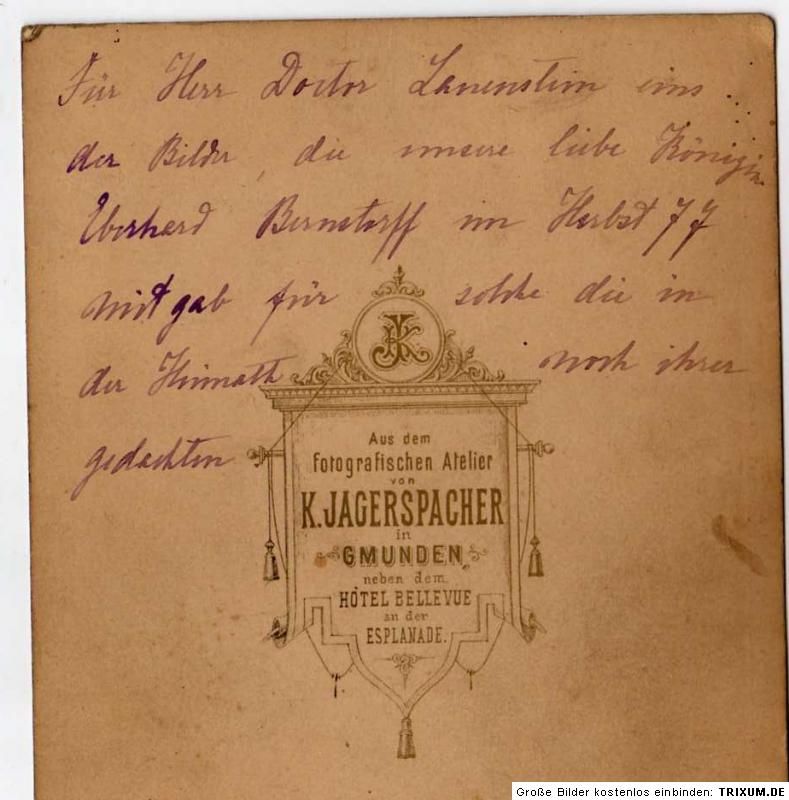 Für Herr Doctor Lauenstein eins
der Bilder, die unsere liebe Königin
Eberhard Bernstorff im Herbst 77
mitgab für solche die in
der Heimath noch ihrer
gedachten
JK
Aus dem
fotografischen Atelier
von
K. JAGERSPACHER
in
GMUNDEN,
neben dem
HÔTEL BELLEVUE
an der
ESPLANADE.
Große Bilder kostenlos einbinden: TRIXUM.DE